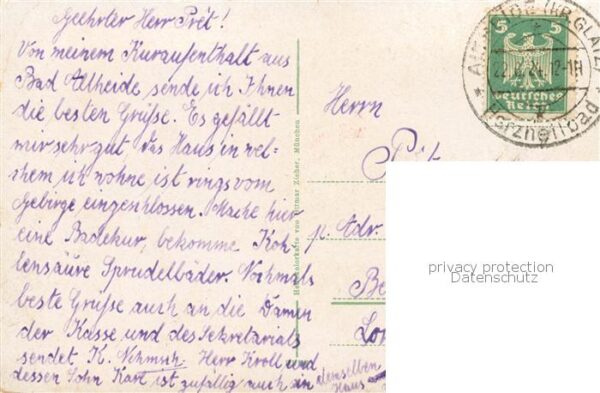 Geehrter Herr Prêt!
Von meinem Kuraufenthalt aus
Bad Altheide sende ich Ihnen
die besten Grüße. Es gefällt
mir sehr gut das Haus in wel-
chem ich wohne ist rings vom
Gebirge eingeschlossen. Mache hier
eine Badekur, bekomme Koh-
lensäure Sprudelbäder. Nochmals
beste Grüße auch an die Damen
der Kasse und des Sekretariats
sendet K. Herr Kroll und
dessen Sohn Karl ist zufällig auch in demselben
Haus
Ottmar Zieher, München
Herrn
p. Adr.
5 5
Deutsches
Reich
(KR. GLATZ)
12-1N
Herzheilbad
privacy protection
Datenschutz